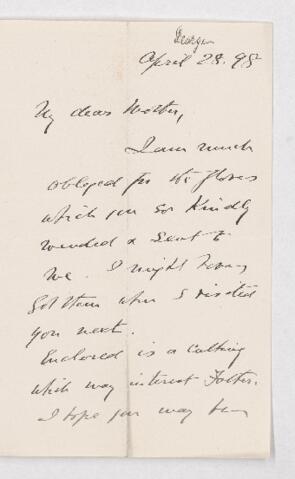 George
April 28. 98
My dear Mother,
I am much
obliged for the gloves
which you so kindly
mended & sent to
me. I might have
got them when I visited
you next.
Enclosed is a cutting
which may interest Father.
I hope you may